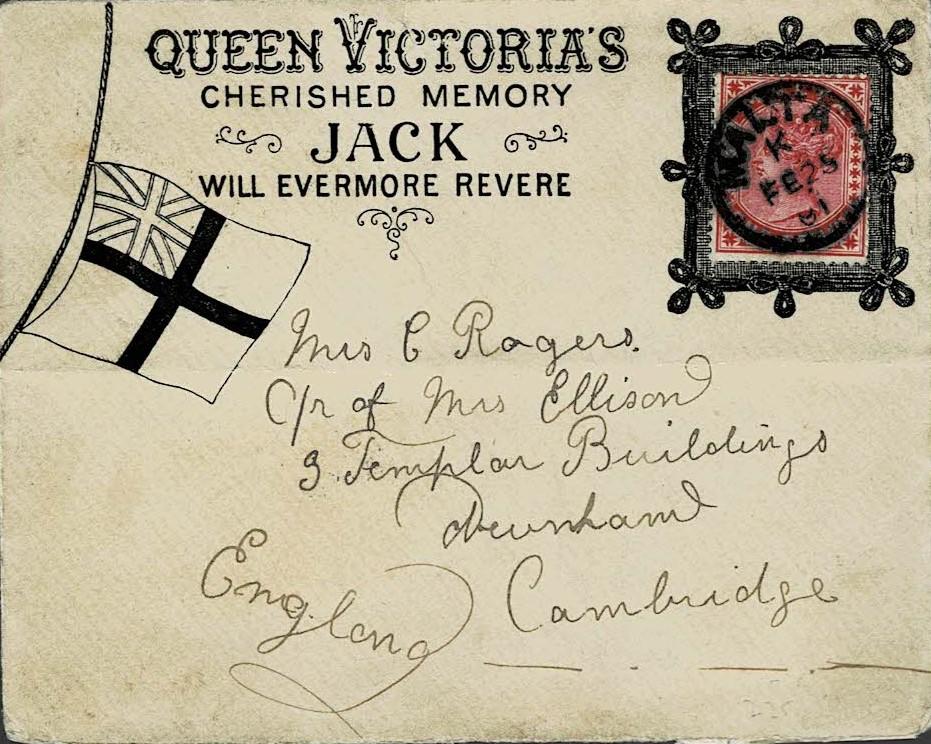 QUEEN VICTORIA'S
CHERISHED MEMORY
JACK
WILL EVERMORE REVERE
MALTA
K
FE 25
01
Mrs C Rogers.
C/r of Mrs Ellison
3 Templar Buildings
Downham
Cambridge
England